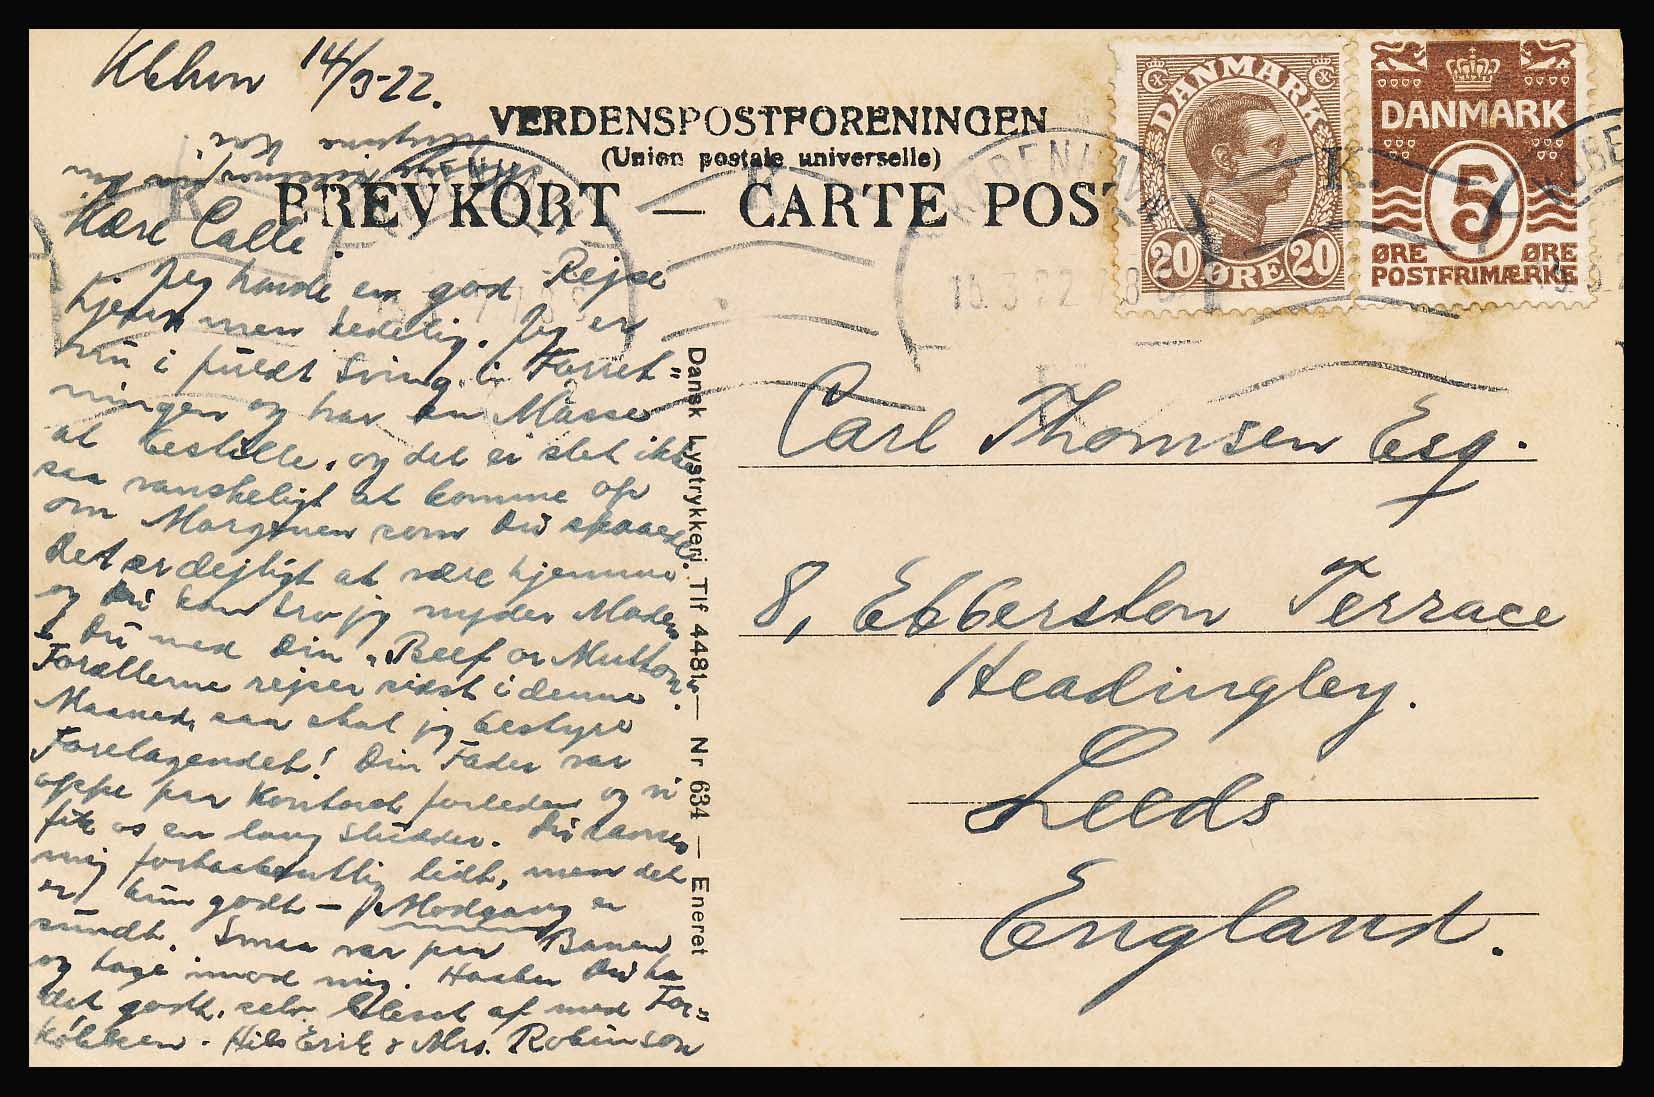 Kbhvn 14/3-22.
VERDENSPOSTFORENINGEN
(Union postale universelle)
BREVKORT — CARTE POST
DANMARK
20 ØRE 20
DANMARK
5
ØRE ØRE
POSTFRIMÆRKE
KØBENHAVN
K.
15.3.22
Kære Calle.
Jeg havde en god Rejse
hjem men kedelig. Jeg er
nu i fuldt Sving i Forret-
ningen og har en Masse
at bestille, og det er slet ikke
saa vanskeligt at komme op
om Morgenen som Du spaaede.
Det er dejligt at være hjemme
og Du kan tro jeg nyder Maden
Du med Din "Beef or Mutton".
Forældrene rejser sidst i denne
Maaned, saa skal jeg bestyre
Foretagendet! Din Fader var
oppe paa Kontoret forleden og vi
fik os en lang Sludder. Du savner
mig forhaabentlig lidt, men det
er kun godt – Modgang er
sundt. Smaa var paa Banen
og tage imod mig. Haaber Du ha
det godt, selv blæst af med For-
kølelsen. Hils Erik & Mrs. Robinson
Dansk Lystrykkeri Tlf 4481. — Nr 634 — Eneret
Carl Thomsen Esq.
8, Ebberston Terrace
Headingley.
Leeds
England.